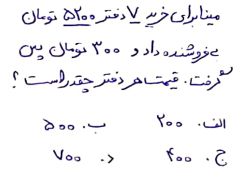 مینا برای خرید ۷ دفتر ۵۲۰۰ تومان
به فروشنده داد و ۳۰۰ تومان پس
گرفت. قیمت هر دفتر چقدر است؟
الف. ۲۰۰ ب. ۵۰۰
ج. ۴۰۰ د. ۷۰۰